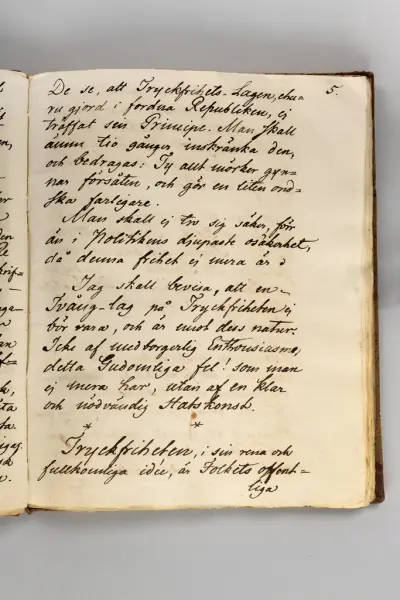 5.
De se, att Tryckfrihets-Lagen, ehu-
ru gjord i fordna Republiken, ej
träffat sin Principe. Man skall
ännu tio gånger inskränka den,
och bedragas: Ty allt mörker gyn-
nar försåten, och gör en liten ond-
ska farligare.
Man skall ej tro sig säker, för
än i Politikens djupaste osäkerhet,
då denna frihet ej mera är.
Jag skall bevisa, att en
Tvång-lag på Tryckfriheten ej
bör vara, och är emot dess natur.
Icke af medborgerlig Enthousiasme,
detta Gudomliga fel! som man
ej mera har, utan af en klar
och nödvändig Statskonst.
* *
Tryckfriheten, i sin rena och
fullkomliga idée, är Folkets offent-
liga